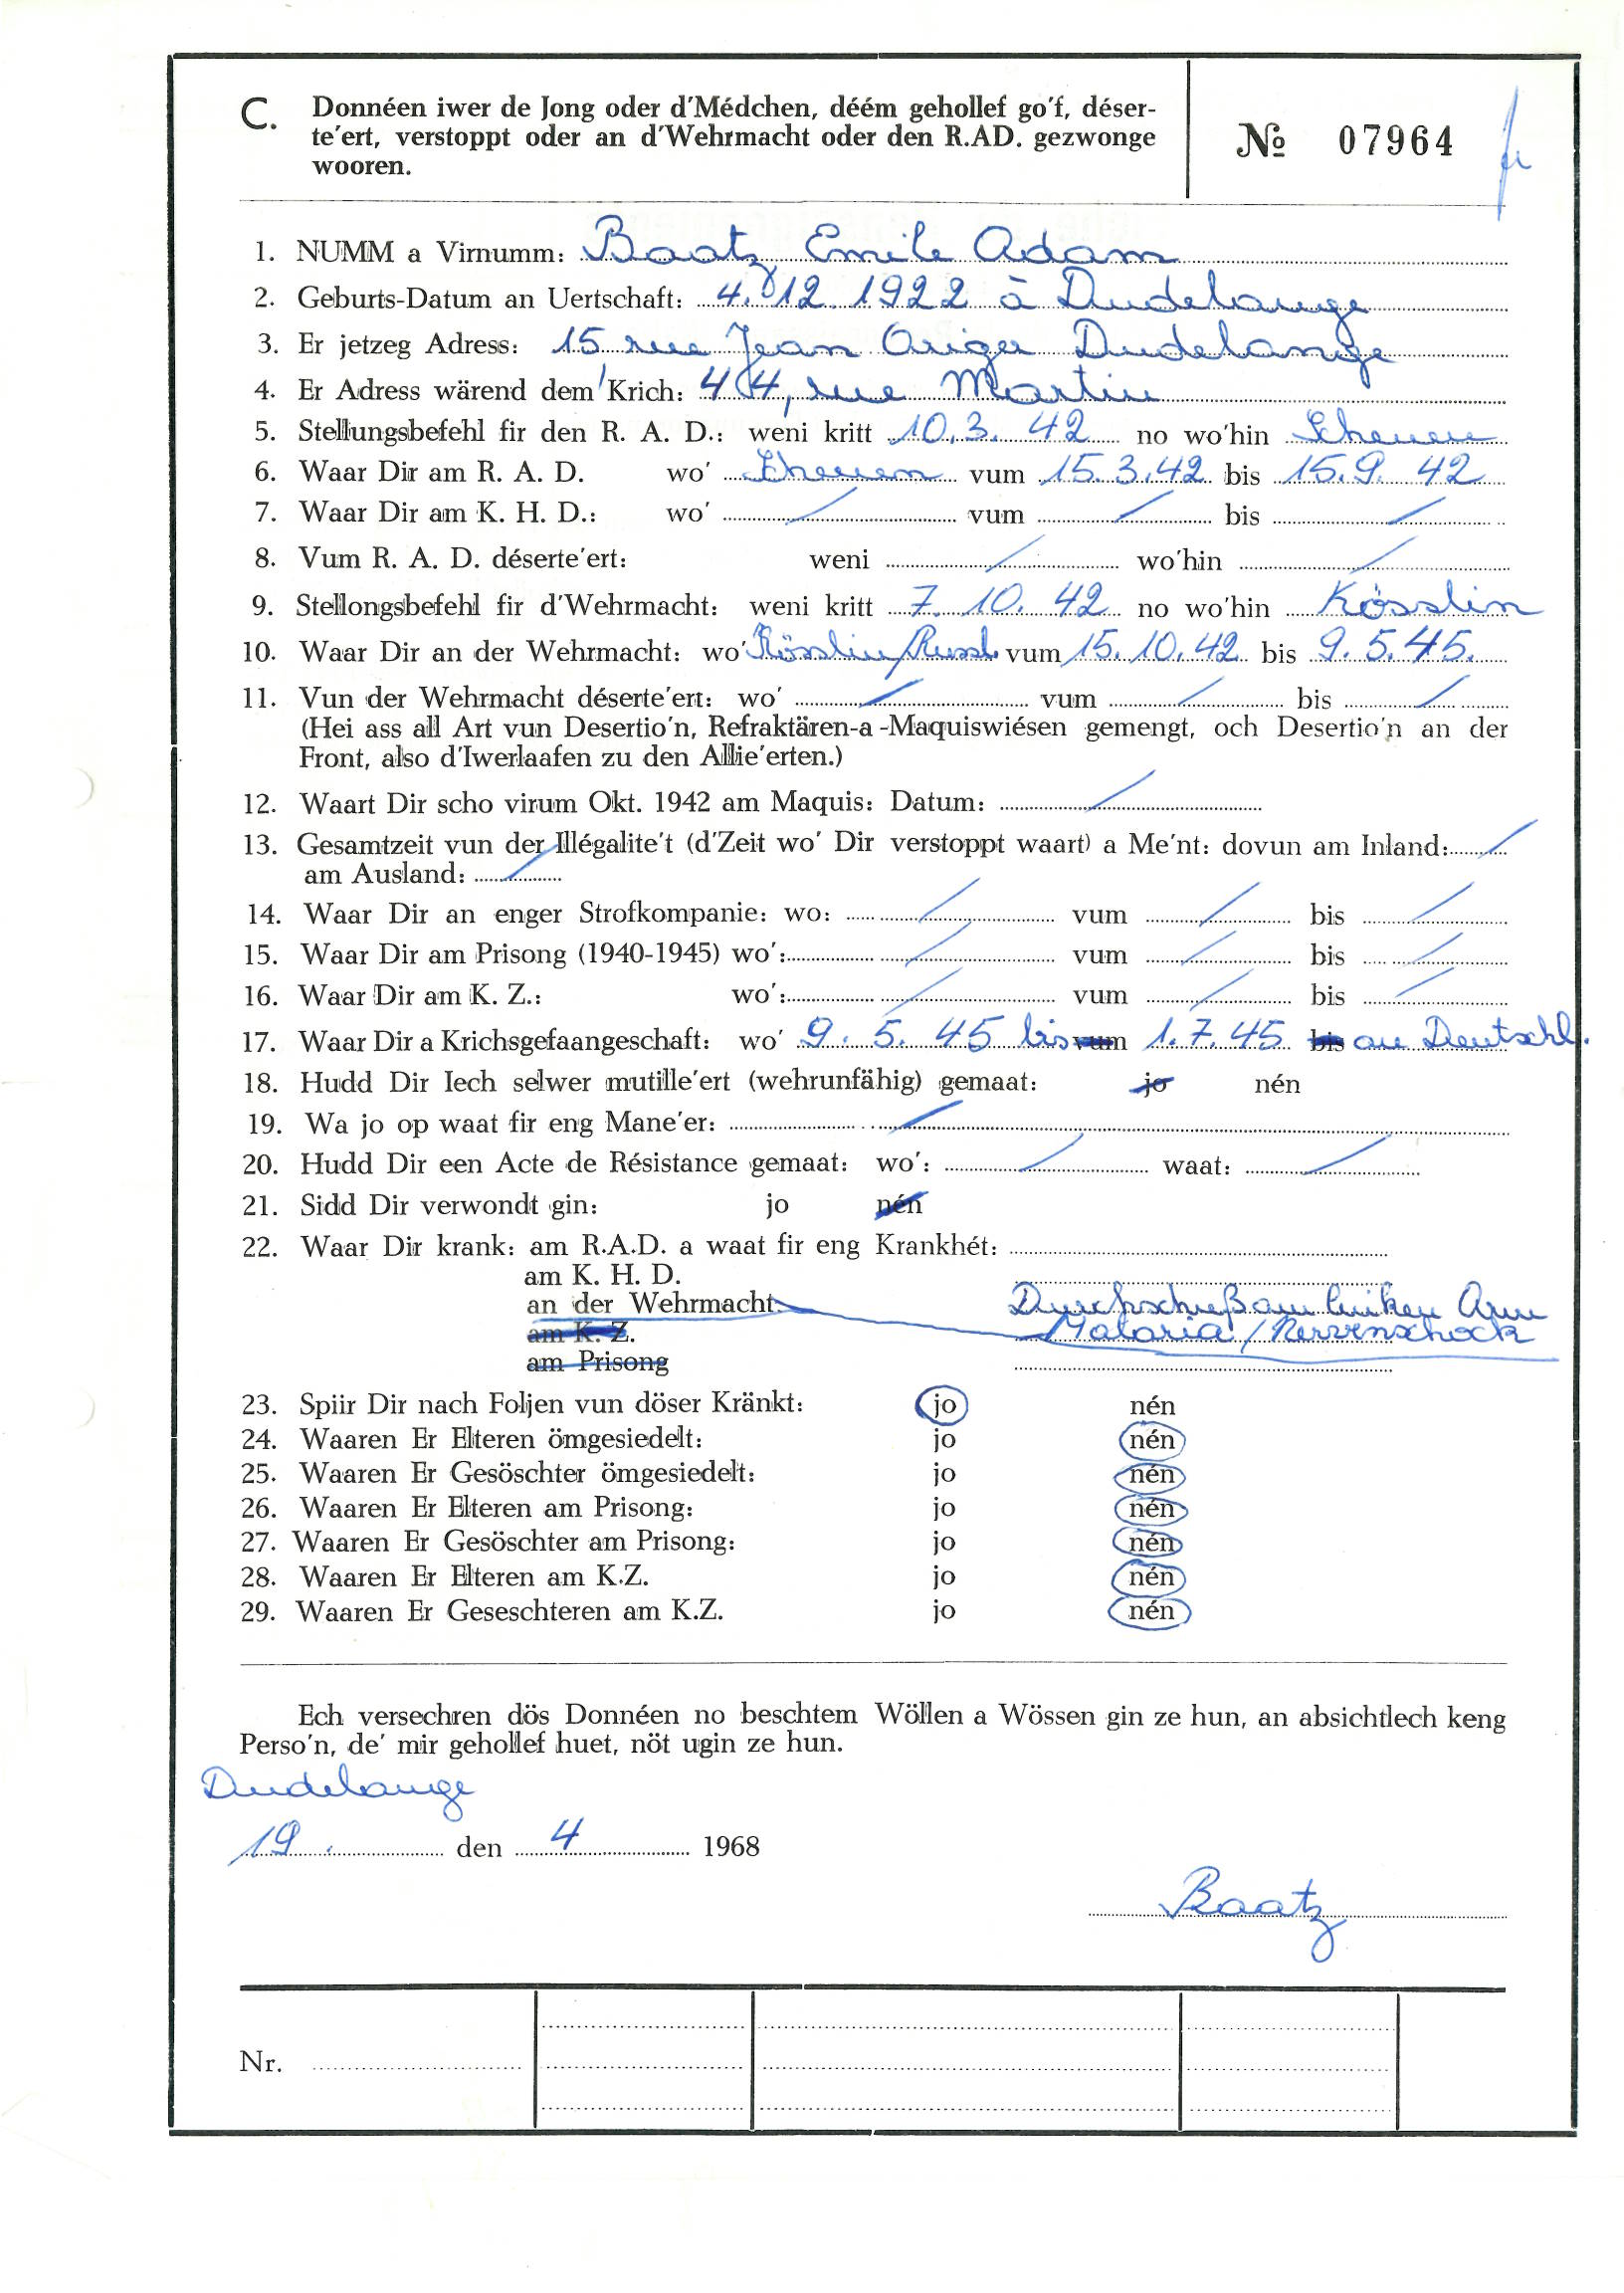 C. Donnéen iwer de Jong oder d'Médchen, déém gehollef go'f, déser-
te'ert, verstoppt oder an d'Wehrmacht oder den R.AD. gezwonge
wooren.
№ 07964
1. NUMM a Virnumm: Baatz Emile Adam
2. Geburts-Datum an Uertschaft: 4. 12. 1922 à Dudelange
3. Er jetzeg Adress: 15 rue Jean Origer Dudelange
4. Er Adress wärend dem Krich: 44, rue Martin
5. Stellungsbefehl fir den R. A. D.: weni kritt 10.3. 42 no wo'hin Scheuen
6. Waar Dir am R. A. D. wo' Scheuen vum 15.3.42 bis 15.9. 42
7. Waar Dir am K. H. D.: wo' / vum / bis /
8. Vum R. A. D. déserte'ert: weni / wo'hin /
9. Stellongsbefehl fir d'Wehrmacht: weni kritt 7. 10. 42 no wo'hin Kösslin
10. Waar Dir an der Wehrmacht: wo' Kösslin/Russl. vum 15. 10. 42 bis 9. 5. 45.
11. Vun der Wehrmacht déserte'ert: wo' / vum / bis /
(Hei ass all Art vun Desertio'n, Refraktären-a-Maquiswiésen gemengt, och Desertio'n an der
Front, also d'Iwerlaafen zu den Allie'erten.)
12. Waart Dir scho virum Okt. 1942 am Maquis: Datum: /
13. Gesamtzeit vun der Illégalite't (d'Zeit wo' Dir verstoppt waart) a Me'nt: dovun am Inland: /
am Ausland: /
14. Waar Dir an enger Strofkompanie: wo: / vum / bis /
15. Waar Dir am Prisong (1940-1945) wo': / vum / bis /
16. Waar Dir am K. Z.: wo': / vum / bis /
17. Waar Dir a Krichsgefaangeschaft: wo' 9. 5. 45 bis vum 1. 7. 45 bis au Deutschl.
18. Hudd Dir Iech selwer mutille'ert (wehrunfähig) gemaat: jo nén
19. Wa jo op waat fir eng Mane'er: /
20. Hudd Dir een Acte de Résistance gemaat: wo': / waat: /
21. Sidd Dir verwondt gin: jo nén
22. Waar Dir krank: am R.A.D. a waat fir eng Krankhét:
am K. H. D.
an der Wehrmacht Durchschuß am linken Arm
am K. Z. Malaria / Nervenschock
am Prisong
23. Spiir Dir nach Foljen vun döser Kränkt: jo nén
24. Waaren Er Elteren ömgesiedelt: jo nén
25. Waaren Er Gesöschter ömgesiedelt: jo nén
26. Waaren Er Elteren am Prisong: jo nén
27. Waaren Er Gesöschter am Prisong: jo nén
28. Waaren Er Elteren am K.Z. jo nén
29. Waaren Er Geseschteren am K.Z. jo nén
Ech versechren dös Donnéen no beschtem Wöllen a Wössen gin ze hun, an absichtlech keng
Perso'n, de' mir gehollef huet, nöt ugin ze hun.
Dudelange
19. den 4 1968
Baatz
Nr.